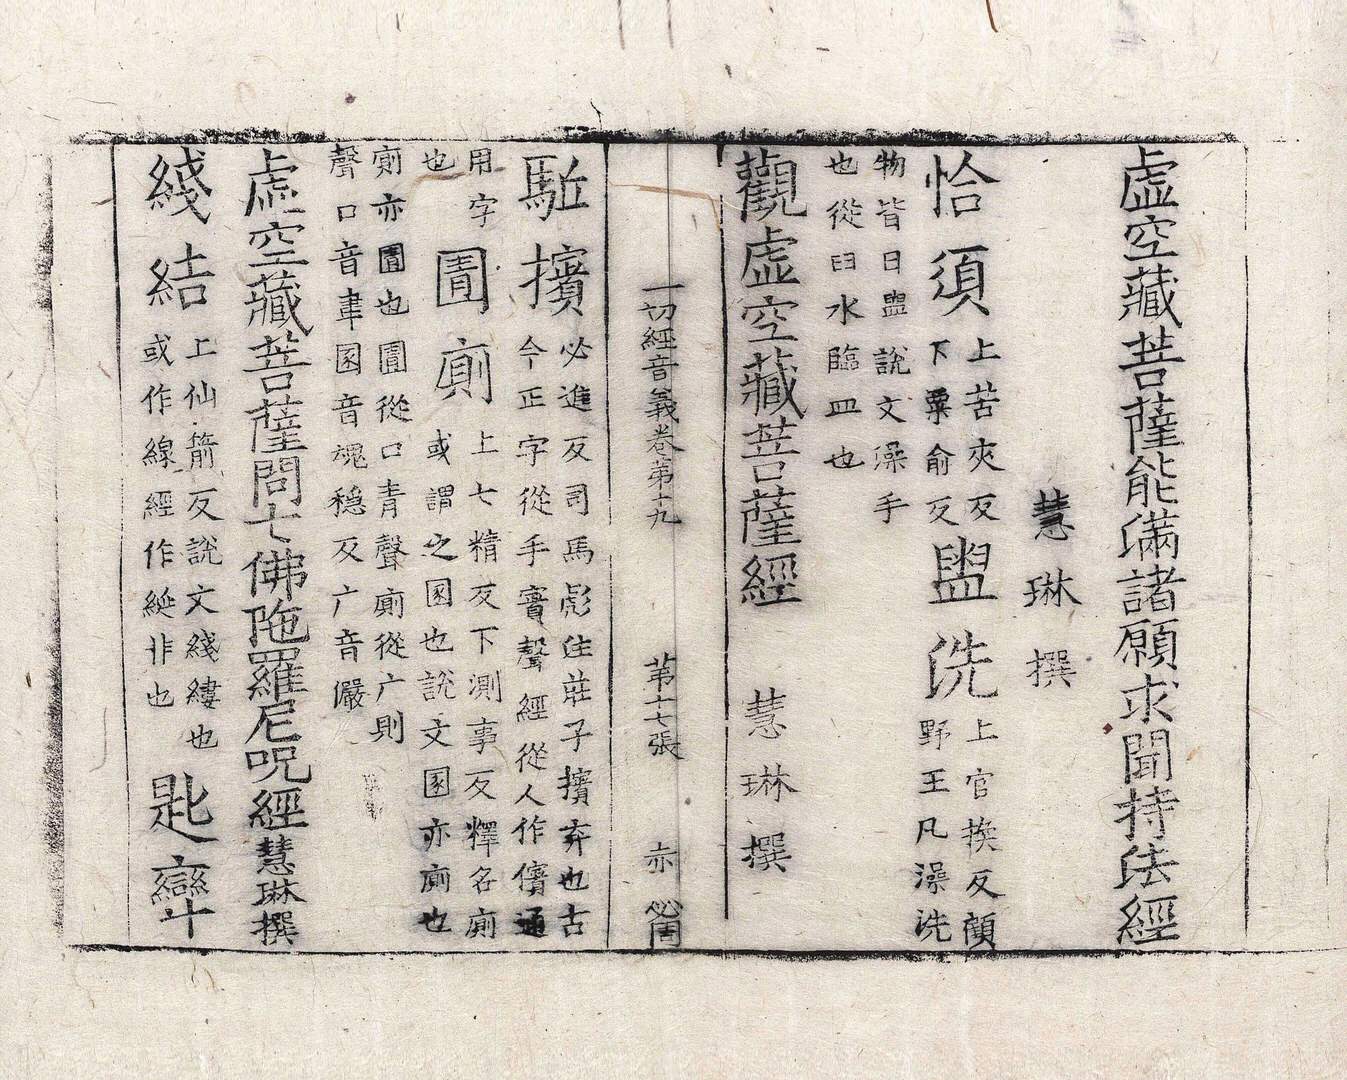 虛空藏菩薩能滿諸願求聞持法經
慧琳撰
恰須上苦夾反下粟俞反盥洗上官換反顧野王凡澡洗
物皆曰盥說文澡手也從臼水臨皿也
觀虛空藏菩薩經 慧琳撰
一切經音義卷第十九 第十七張 赤 必周
駈擯必進反司馬彪注莊子擯弃也古今正字從手賓聲經從人作儐通
用字也圊廁上七精反下測事反釋名廁或謂之圂也說文圂亦廁也
廁亦圊也圊從口青聲廁從广則聲口音韋圂音魂穩反广音儼
虛空藏菩薩問七佛陁羅尼呪經慧琳撰
綫結上仙箭反說文綫縷也或作線經作綖非也匙